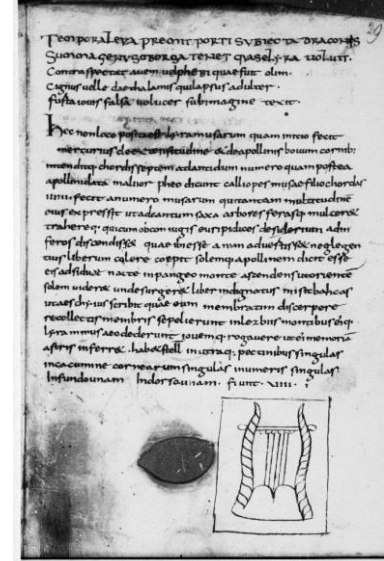 29
TEMPORA LEVA PREMIT PORTI SVBIECTA DRACONIS
SVMMA GENVS OBORGA TENET QVA SE LYRA VOLVIT
Contra spectat avem vel phebi quae fuit olim.
Cignus velle daenhalamis qui lapsus adulter
fusta iovis falsa volucer sub imagine texit
Hec non loco posita est lyra musarum quam initio fecit
mercurius de & de apollinis bouum cornib;
intendit q; chordis septem atlantidum numero quam postea
apollini data maluor pheo dicunt calliopes musae filio chordas
viiii. fecit a numero musarum qui tantam multitudine
eius expressit ut adeantum saxa arbores ferasq; mulcer&
traher&q; quicum obconiugis euripidices desiderium adin
feros discendiss& quae ibi esse a nam aduestiss& neglegen
tius liberum coler& coepit solemq; apollinem dicit esse
eis adsidue nacte in pangeo monte ascendens ut oriente
solem vider& unde surger& liber indignatus misit bahcas
ut aeschylus scribit quae eum membratim discerpere
recollectis membris sepelierunt in lezbiis montibus eiq;
lyra minus aeo dederunt iovemq; rogauere ut ei memoria
astris inferr&. hab& stell in utraq; pectinibus singulas
in cacumine cornearum singulas in umeris singulas
In fundo unam In dorso unam. fiunt viiii.